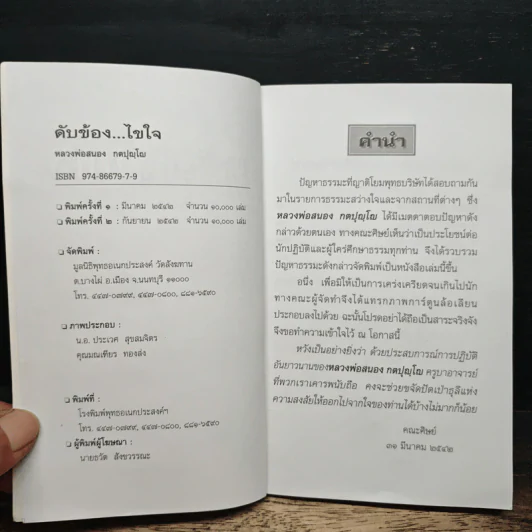 คับข้อง...ไขใจ
หลวงพ่อสนอง กตปุญฺโญ
ISBN 974-86679-7-9
❑ พิมพ์ครั้งที่ ๑ : มีนาคม ๒๕๔๒ จำนวน ๑๐,๐๐๐ เล่ม
❑ พิมพ์ครั้งที่ ๒ : กันยายน ๒๕๔๒ จำนวน ๑๐,๐๐๐ เล่ม
❑ จัดพิมพ์ :
มูลนิธิพุทธอเนกประสงค์ วัดสังฆทาน
ต.บางไผ่ อ.เมือง จ.นนทบุรี ๑๑๐๐๐
โทร. ๔๔๗-๐๗๙๙, ๔๔๗-๐๘๐๐, ๘๘๑-๖๕๙๐
❑ ภาพประกอบ :
น.อ. ประเวศ สุขสมจิตร
คุณมณเฑียร ทองส่ง
❑ พิมพ์ที่ :
โรงพิมพ์พุทธอเนกประสงค์ฯ
โทร. ๔๔๗-๐๗๙๙, ๔๔๗-๐๘๐๐, ๘๘๑-๖๕๙๐
❑ ผู้พิมพ์ผู้โฆษณา :
นายธวัด สังขวรรณะ
คำนำ
ปัญหาธรรมะที่ญาติโยมพุทธบริษัทได้สอบถามกัน
มาในรายการธรรมะสว่างใจและจากสถานที่ต่างๆ ซึ่ง
หลวงพ่อสนอง กตปุญฺโญ ได้มีเมตตาตอบปัญหาดัง
กล่าวด้วยตนเอง ทางคณะศิษย์เห็นว่าเป็นประโยชน์ต่อ
นักปฏิบัติและผู้ใคร่ศึกษาธรรมทุกท่าน จึงได้รวบรวม
ปัญหาธรรมะดังกล่าวจัดพิมพ์เป็นหนังสือเล่มนี้ขึ้น
อนึ่ง เพื่อมิให้เป็นการเคร่งเครียดจนเกินไปนัก
ทางคณะผู้จัดทำจึงได้แทรกภาพการ์ตูนล้อเลียน
ประกอบลงไปด้วย ฉะนั้นโปรดอย่าได้ถือเป็นสาระจริงจัง
จึงขอทำความเข้าใจไว้ ณ โอกาสนี้
หวังเป็นอย่างยิ่งว่า ด้วยประสบการณ์การปฏิบัติ
อันยาวนานของหลวงพ่อสนอง กตปุญฺโญ ครูบาอาจารย์
ที่พวกเราเคารพนับถือ คงจะช่วยขจัดปัดเป่าธุลีแห่ง
ความสงสัยให้ออกไปจากใจของท่านได้บ้างไม่มากก็น้อย
คณะศิษย์
๓๑ มีนาคม ๒๕๔๒